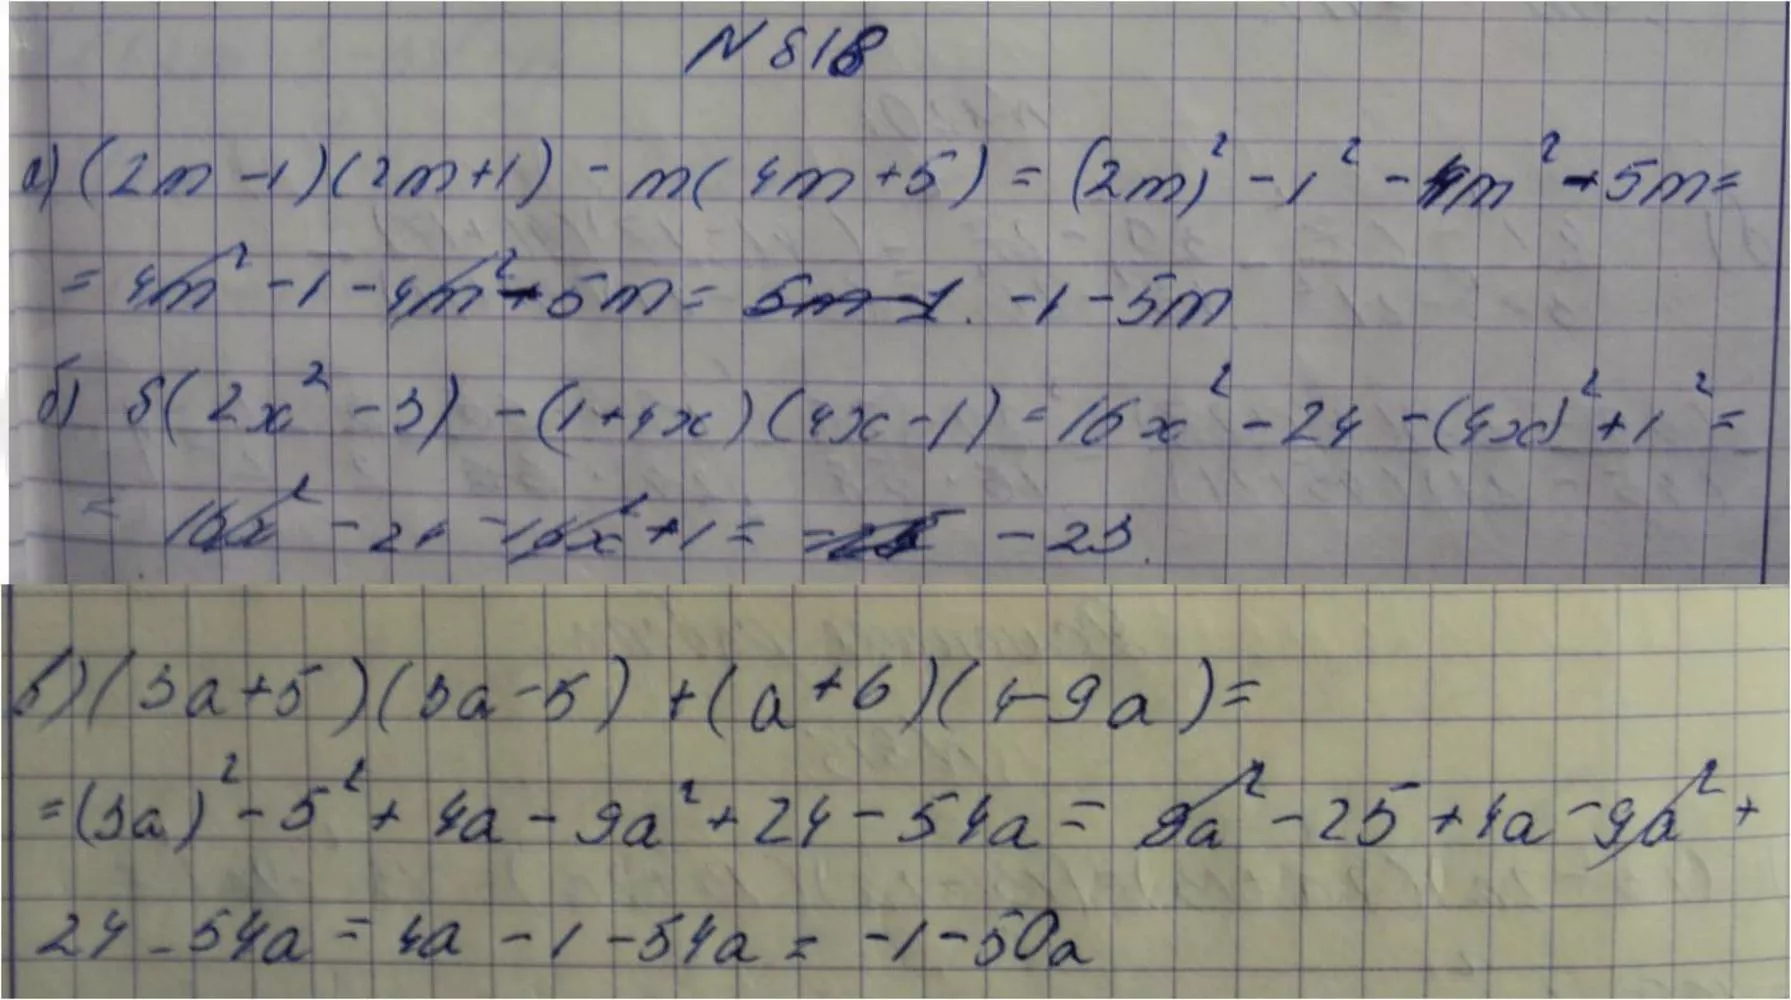 N 818
а) (2m - 1)(2m + 1) - m(4m + 5) = (2m)² - 1² - 4m² - 5m =
= 4m² - 1 - 4m² - 5m = 5m - 1. -1 - 5m
б) 8(2x² - 3) - (1 + 4x)(4x - 1) = 16x² - 24 - (4x)² + 1² =
= 16x² - 24 - 16x² + 1 = -23.
в) (3a + 5)(3a - 5) + (a + 6)(4 - 9a) =
= (3a)² - 5² + 4a - 9a² + 24 - 54a = 9a² - 25 + 4a - 9a² +
24 - 54a = 4a - 1 - 54a = -1 - 50a